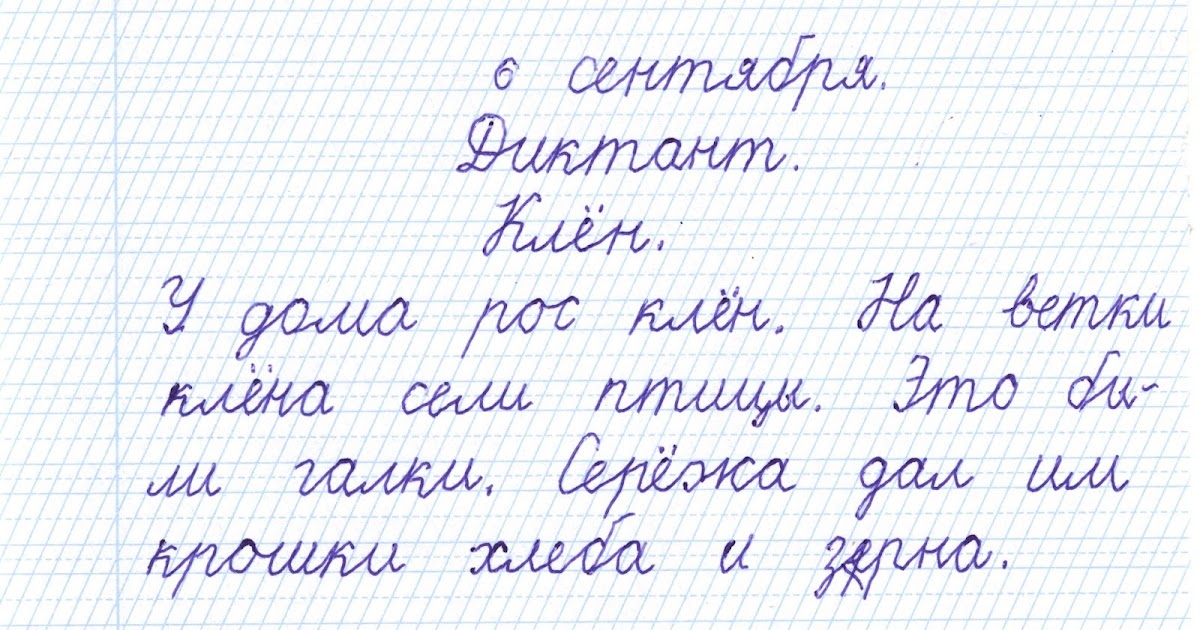 6 сентября.
Диктант.
Клён.
У дома рос клён. На ветки
клёна сели птицы. Это бы-
ли галки. Серёжа дал им
крошки хлеба и зерна.